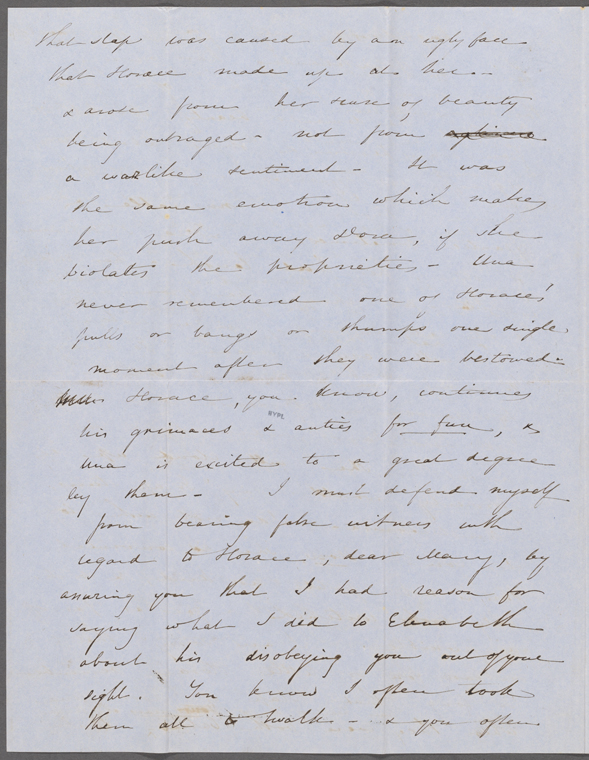 That slap was caused by an ugly face
that Horace made up at her -
& arose from her sense of beauty
being outraged - not from
a warlike sentiment - It was
the same emotion which makes
her push away Dora, if she
violates the proprieties - Una
never remembered one of Horace's
pulls or bangs or thumps one single
moment after they were bestowed -
Horace, you know, continues
his grimaces & antics for fun, &
Una is excited to a great degree
by them - I must defend myself
from bearing false witness with
regard to Horace, dear Mary, by
assuring you that I had reason for
saying what I did to Elizabeth
about his disobeying you out of your
sight. You know I often took
them all to walk - & you often
NYPL